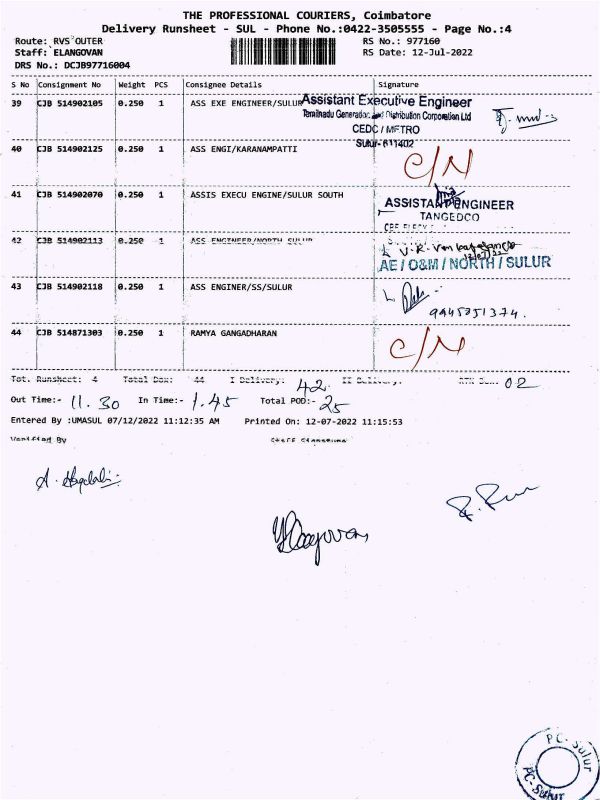 THE PROFESSIONAL COURIERS, Coimbatore
Delivery Runsheet - SUL - Phone No.:0422-3505555 - Page No.:4
Route: RVS OUTER RS No.: 977160
Staff: ELANGOVAN RS Date: 12-Jul-2022
DRS No.: DCJB97716004
S No Consignment No Weight PCS Consignee Details Signature
39 CJB 514902105 0.250 1 ASS EXE ENGINEER/SULUR Assistant Executive Engineer
Tamilnadu Generation and Distribution Corporation Ltd
CEDC / METRO
Sulur-611402
40 CJB 514902125 0.250 1 ASS ENGI/KARANAMPATTI C/N
41 CJB 514902070 0.250 1 ASSIS EXECU ENGINE/SULUR SOUTH
ASSISTANT ENGINEER
TANGEDCO
42 CJB 514902113 0.250 1 ASS ENGINEER/NORTH SULUR
AE / O&M / NORTH / SULUR
43 CJB 514902118 0.250 1 ASS ENGINER/SS/SULUR
44 CJB 514871303 0.250 1 RAMYA GANGADHARAN C/N
Tot. Runsheet: 4 Total Dox: 44 I Delivery: 42 II Delivery: 02
Out Time:- 11.30 In Time:- 1.45 Total POD:- 25
Entered By :UMASUL 07/12/2022 11:12:35 AM Printed On: 12-07-2022 11:15:53
Verified By Staff Signature
PC-Sulur
PC-Sulur